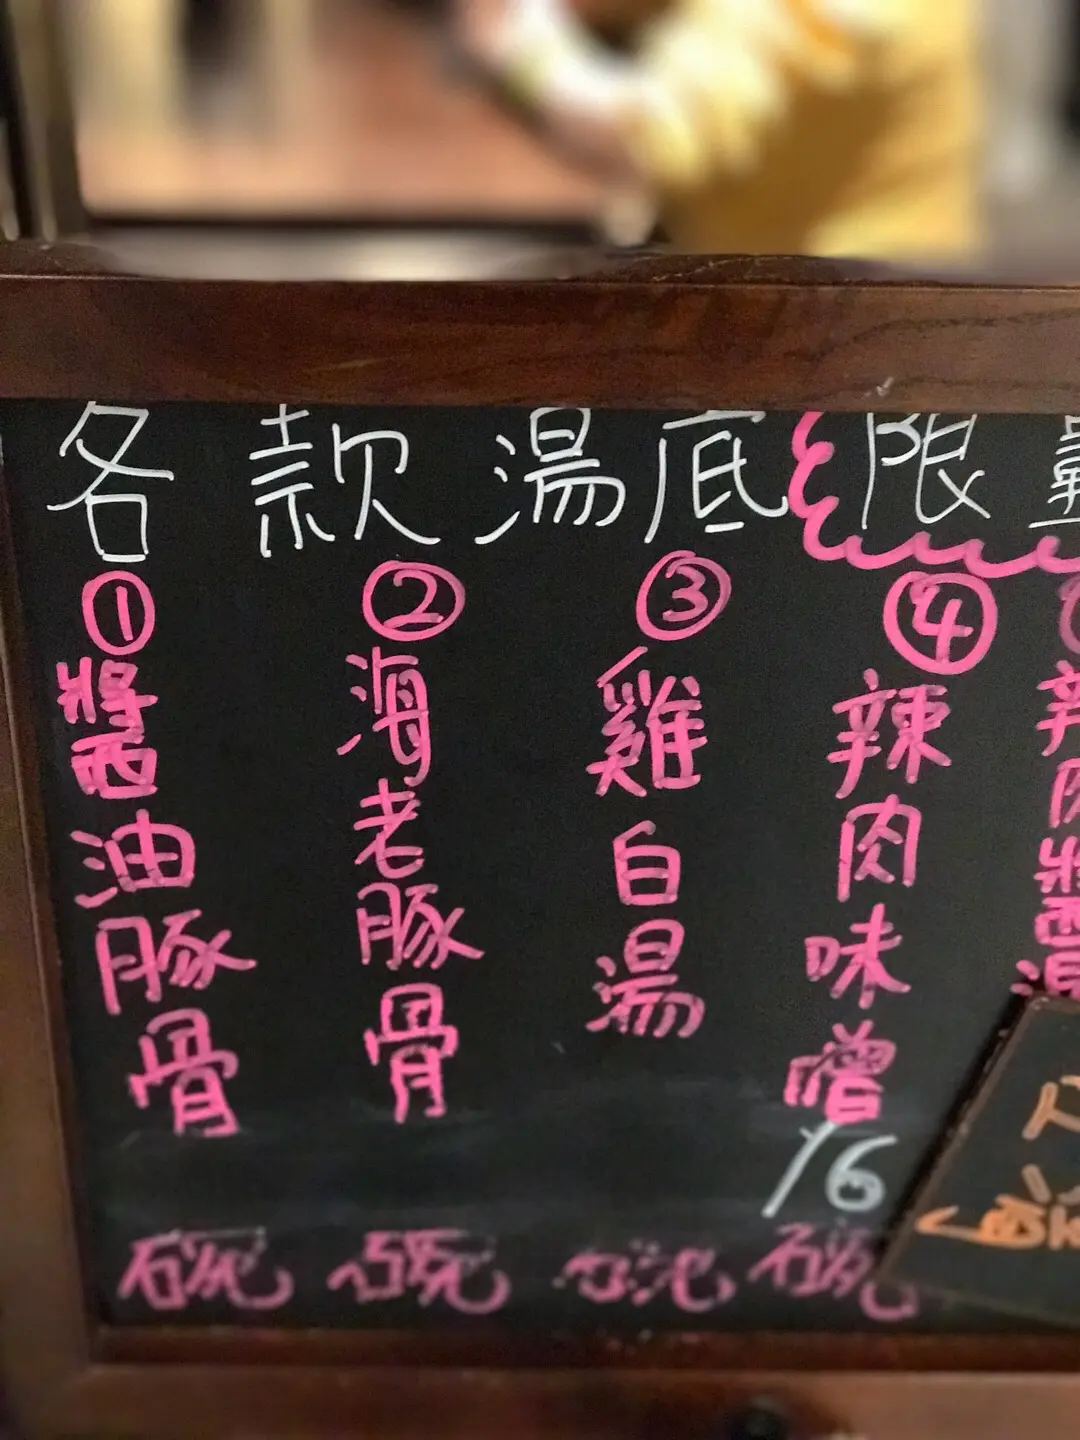 各款湯底限量
①
醬油豚骨
碗
②
海老豚骨
碗
③
雞白湯
碗
④
辣肉味噌
16
碗
辣肉醬湯